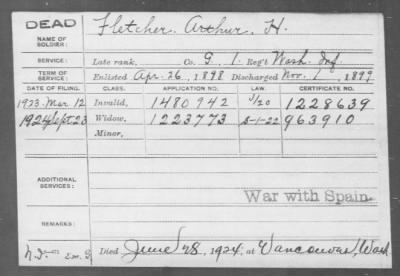 DEAD
NAME OF SOLDIER:
Fletcher, Arthur H.
SERVICE:
Late rank, Co. G, 1. Reg't Wash. Inf.
TERM OF SERVICE:
Enlisted Apr. 26, 1898 Discharged Nov. 1, 1899
DATE OF FILING. CLASS. APPLICATION NO. LAW. CERTIFICATE NO.
1923-Mar 12 Invalid, 1480942 J/20 1228639
1924 Sept 23 Widow, 1223773 S-1-22 963910
Minor,
ADDITIONAL SERVICES:
War with Spain.
REMARKS:
Died June 28, 1924, at Vancouver, Wash